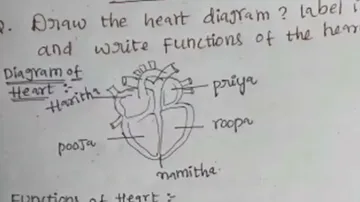 Draw the heart diagram? Label i
and write functions of the hear
Diagram of
Heart :-
Haritha
priya
pooja
roopa
namitha
Functions of Heart :-